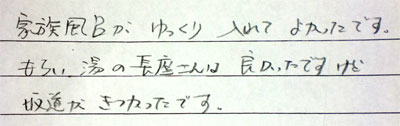 家族風呂が ゆっくり 入れて よかったです。
もらい湯の長座さんは 良かったですけど
坂道が きつかったです。